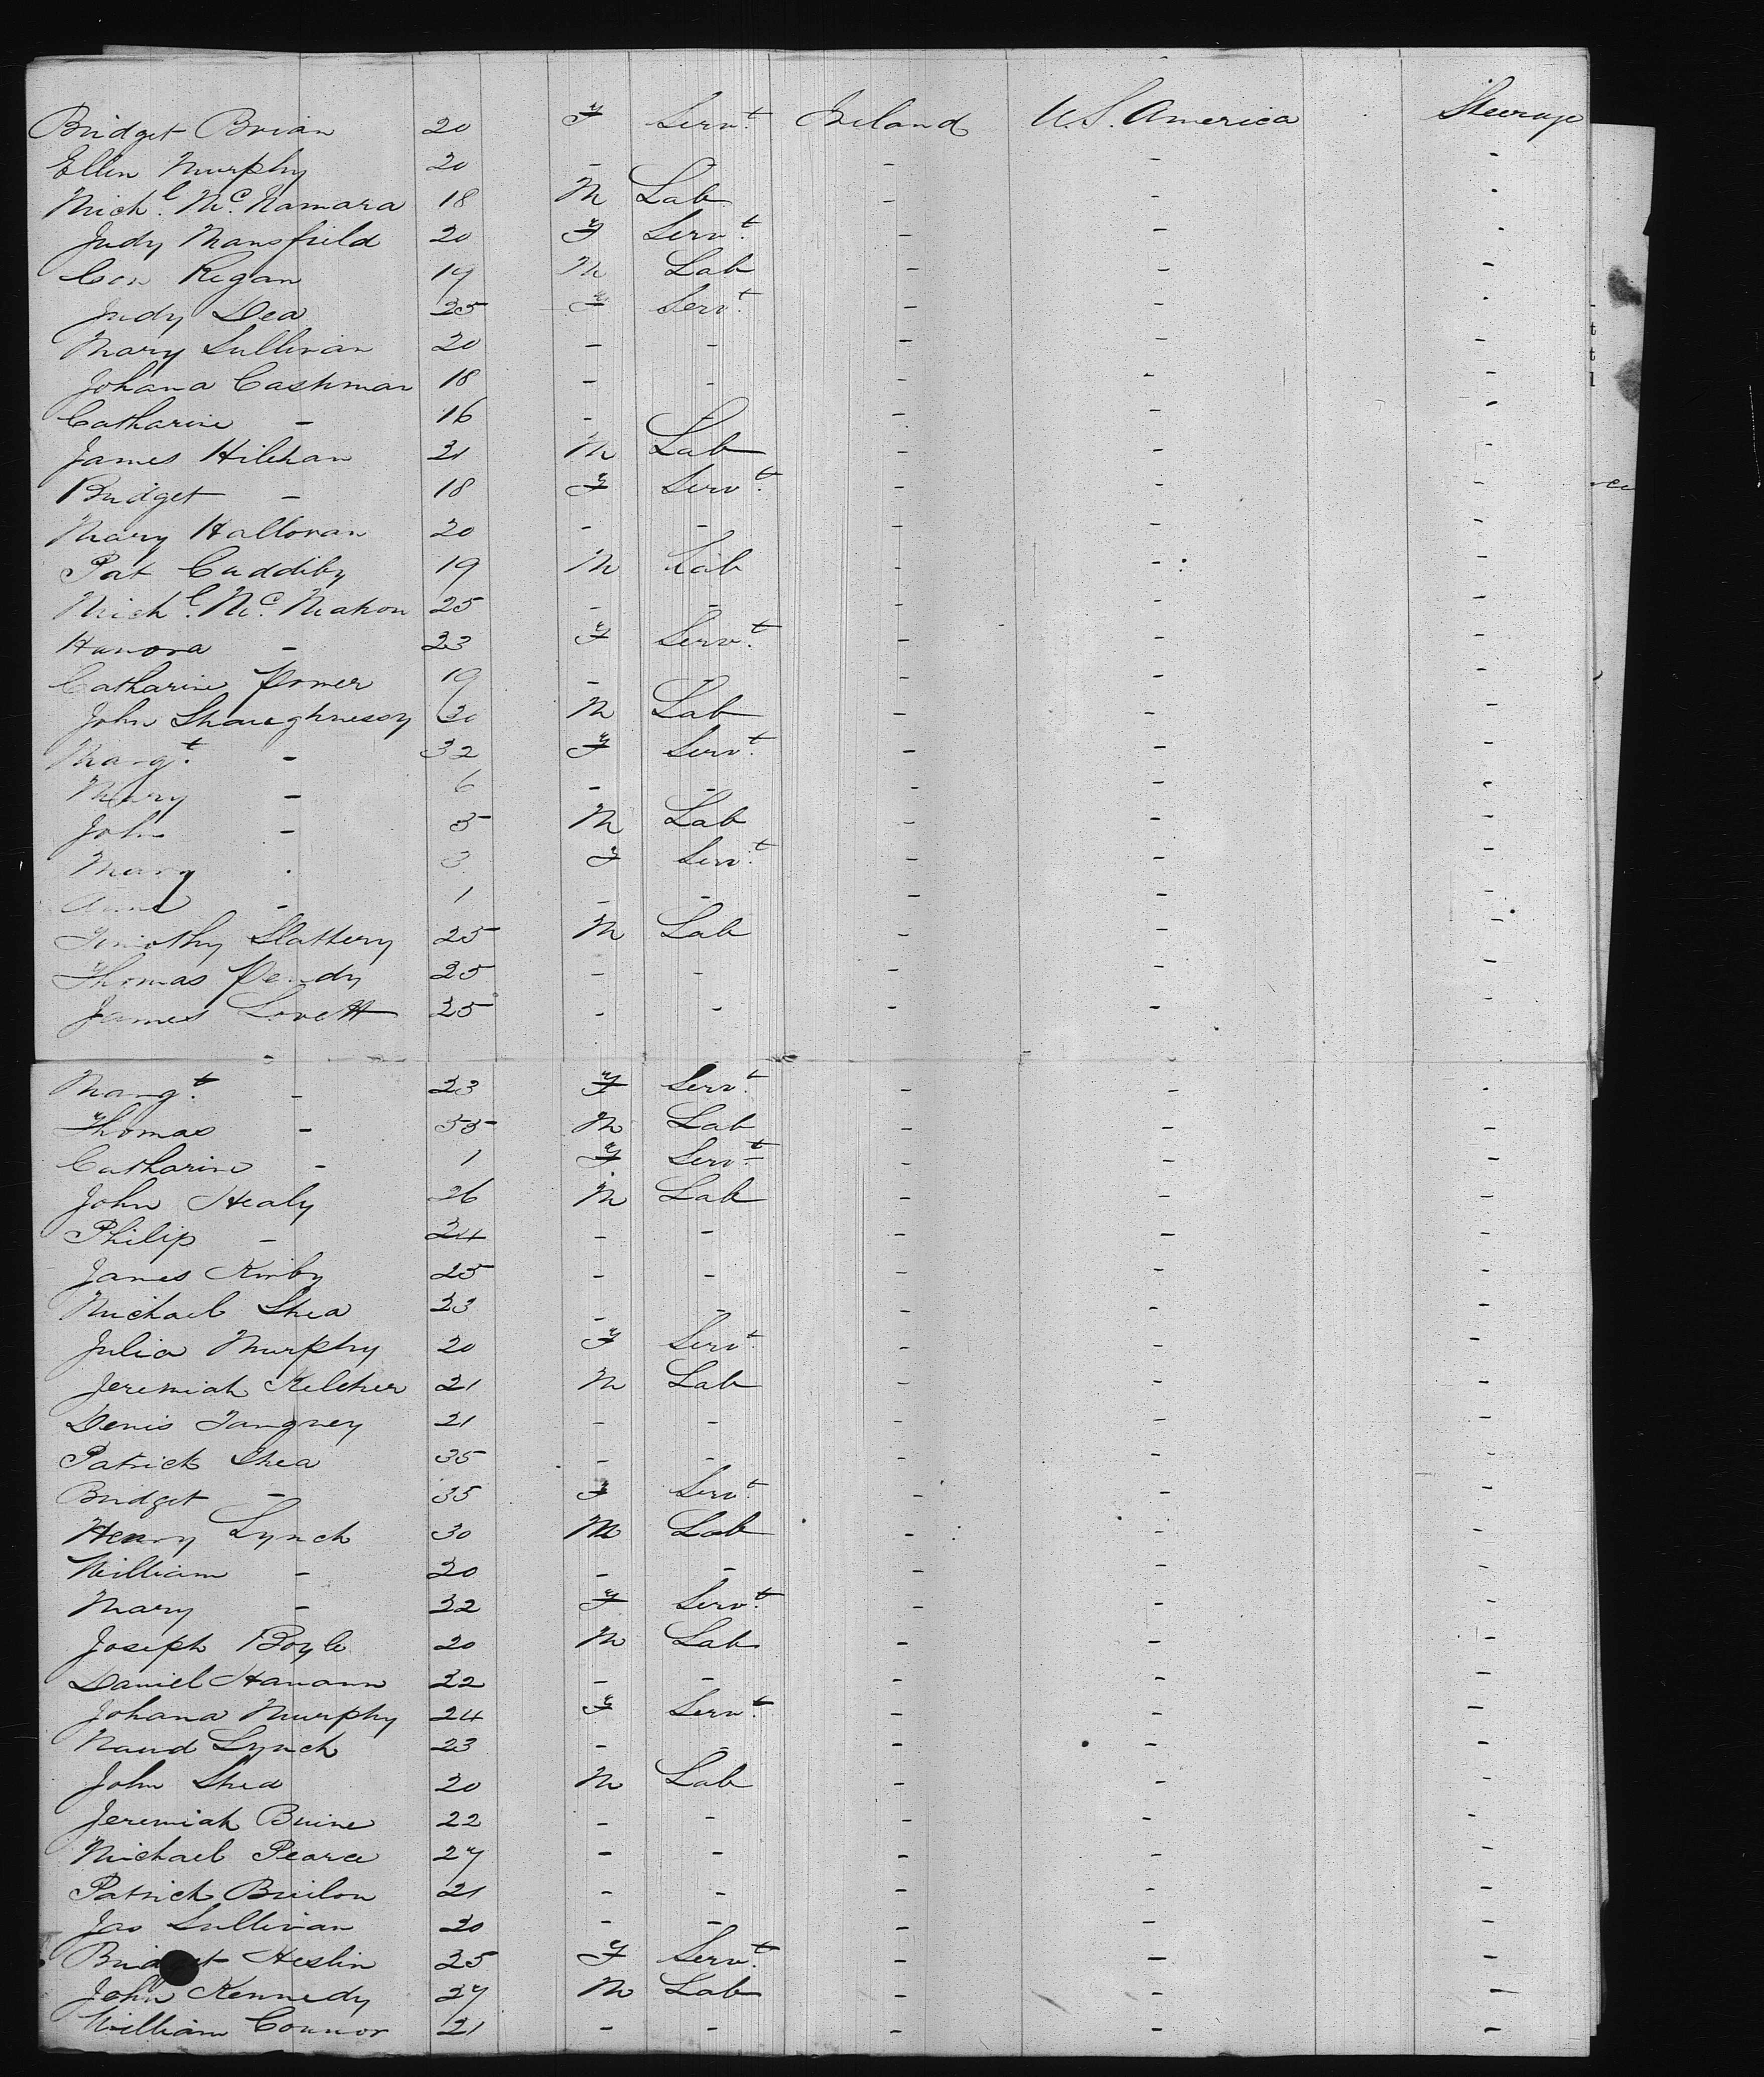 Bridget Brian 20 F Servt. Ireland U.S. America Steerage
Ellen Murphy 20 - - - -
Michl. Mc. Namara 18 M Lab - - -
Judy Mansfield 20 F Servt. - - -
Con Regan 19 M Lab - - -
Judy Dea 25 F Servt. - - -
Mary Sullivan 20 - - - - -
Johana Cashman 18 - - - - -
Catharine - 16 - - - - -
James Hilehan 21 M Lab - - -
Bridget - 18 F Servt. - - -
Mary Halloran 20 - - - - -
Pat Cuddihy 19 M Lab - - -
Michl. Mc. Mahon 25 - - - - -
Hanora - 23 F Servt. - - -
Catharine Power 19 - - - - -
John Shaughnessy 30 M Lab - - -
Margt. - 32 F Servt. - - -
Mary - 6 - - - - -
John - 5 M Lab - - -
Mary - 3 F Servt. - - -
Anne - 1 - - - - -
Timothy Slattery 25 M Lab - - -
Thomas Pendy 25 - - - - -
James Lovett 25 - - - -
Margt. - 23 F Servt. - - -
Thomas - M Lab - - -
Catharine - 1 F Servt. - - -
John Healy 26 M Lab - - -
Philip - 24 - - - - -
James Kirby 25 - - - - -
Michael Shea 23 - - - - -
Julia Murphy 20 F Servt. - - -
Jeremiah Kelcher 21 M Lab - - -
Denis Tangney 21 - - - - -
Patrick Shea 35 - - - - -
Bridget - 35 F Servt. - - -
Henry Lynch 30 M Lab - - -
William - 20 - - - - -
Mary - 32 F Servt. - - -
Joseph Boyle 20 M Lab - - -
Daniel Hanann 22 - - - - -
Johana Murphy 24 F Servt. - - -
Maud Lynch 23 - - - - -
John Shea 20 M Lab - - -
Jeremiah Buine 22 - - - - -
Michael Pearce 27 - - - - -
Patrick 21 - - - - -
Jas Sullivan 20 - - - - -
Bridget Heslin 25 F Servt. - - -
John Kennedy 27 M Lab - - -
William Connor 21 - - - - -